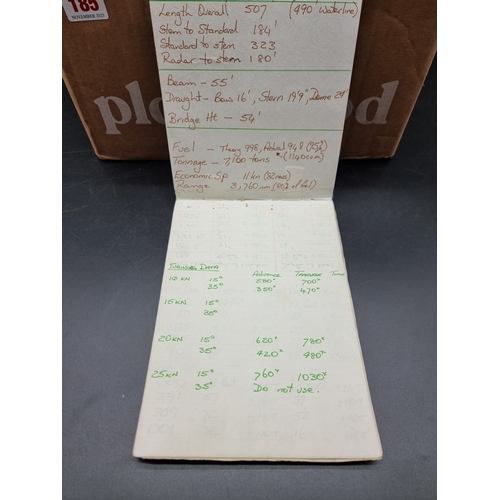 185
NOVEMBER 2017
Length Overall 507 (490' Waterline)
Stem to Standard 184'
Standard to stern 323
Radar to stem 180'
Beam - 55'
Draught - Bow 16', Stern 19'9", Dome 24'
Bridge Ht - 54'
Fuel - Theory 998, Actual 948
Tonnage - 7,100 tons
Economic Sp 11kn
Range 3,760 nm
TURNING DATA
Advance Transfer Time
10 KN 15° 580x 700x
35° 350x 470x
15 KN 15°
35°
20 KN 15° 620x 780x
35° 420x 480x
25 KN 15° 760x 1030x
35° Do not use.